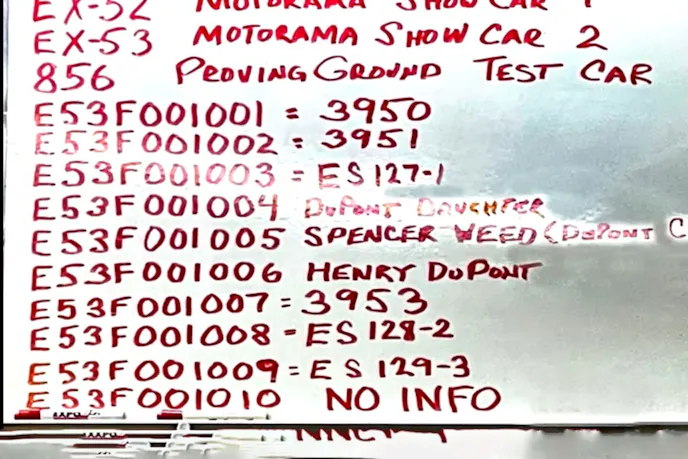 EX-52 MOTORAMA SHOW CAR 1
EX-53 MOTORAMA SHOW CAR 2
856 PROVING GROUND TEST CAR
E53F001001 = 3950
E53F001002 = 3951
E53F001003 = ES127-1
E53F001004 DUPONT DAUGHTER
E53F001005 SPENCER WEED (DUPONT C
E53F001006 HENRY DUPONT
E53F001007 = 3953
E53F001008 - ES 128-2
E53F001009 = ES 129-3
E53F001010 NO INFO